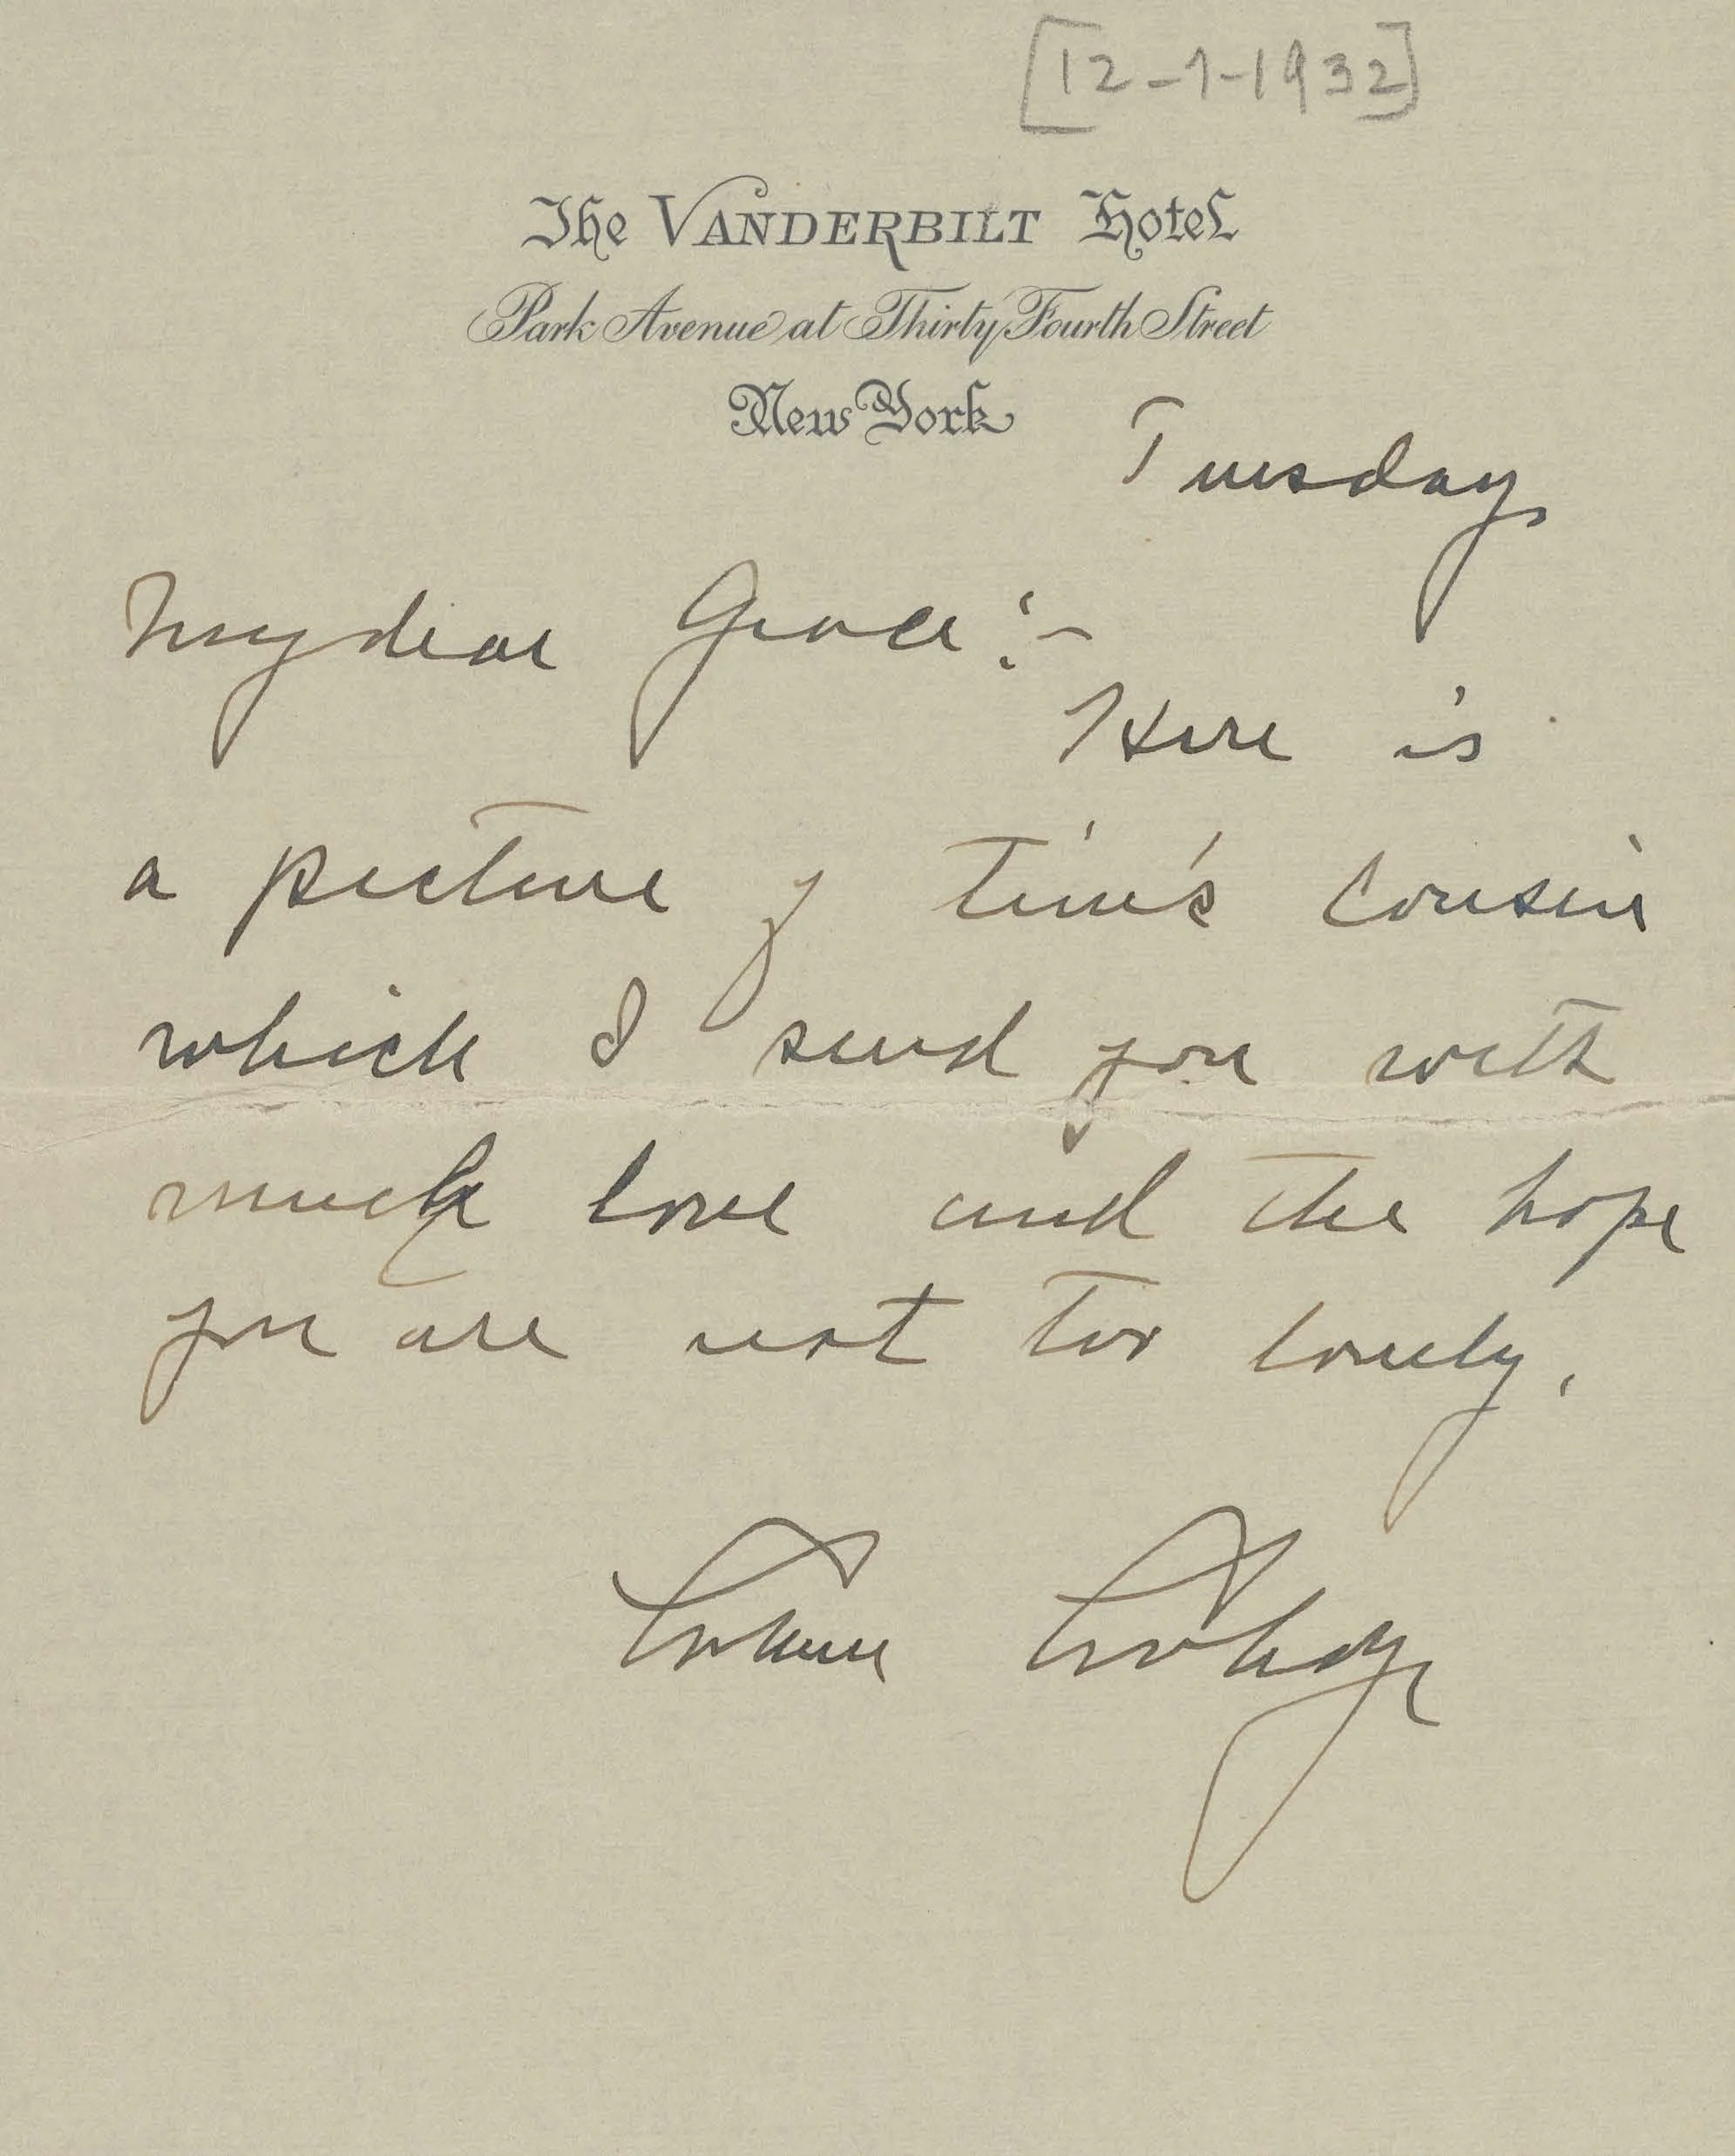 [12-1-1932]
The VANDERBILT Hotel
Park Avenue at Thirty Fourth Street
New York
Tuesday
My dear Grace:-
Here is
a picture of Tim's cousin
which I send you with
much love and the hope
you are not too lonely.
Calvin Coolidge